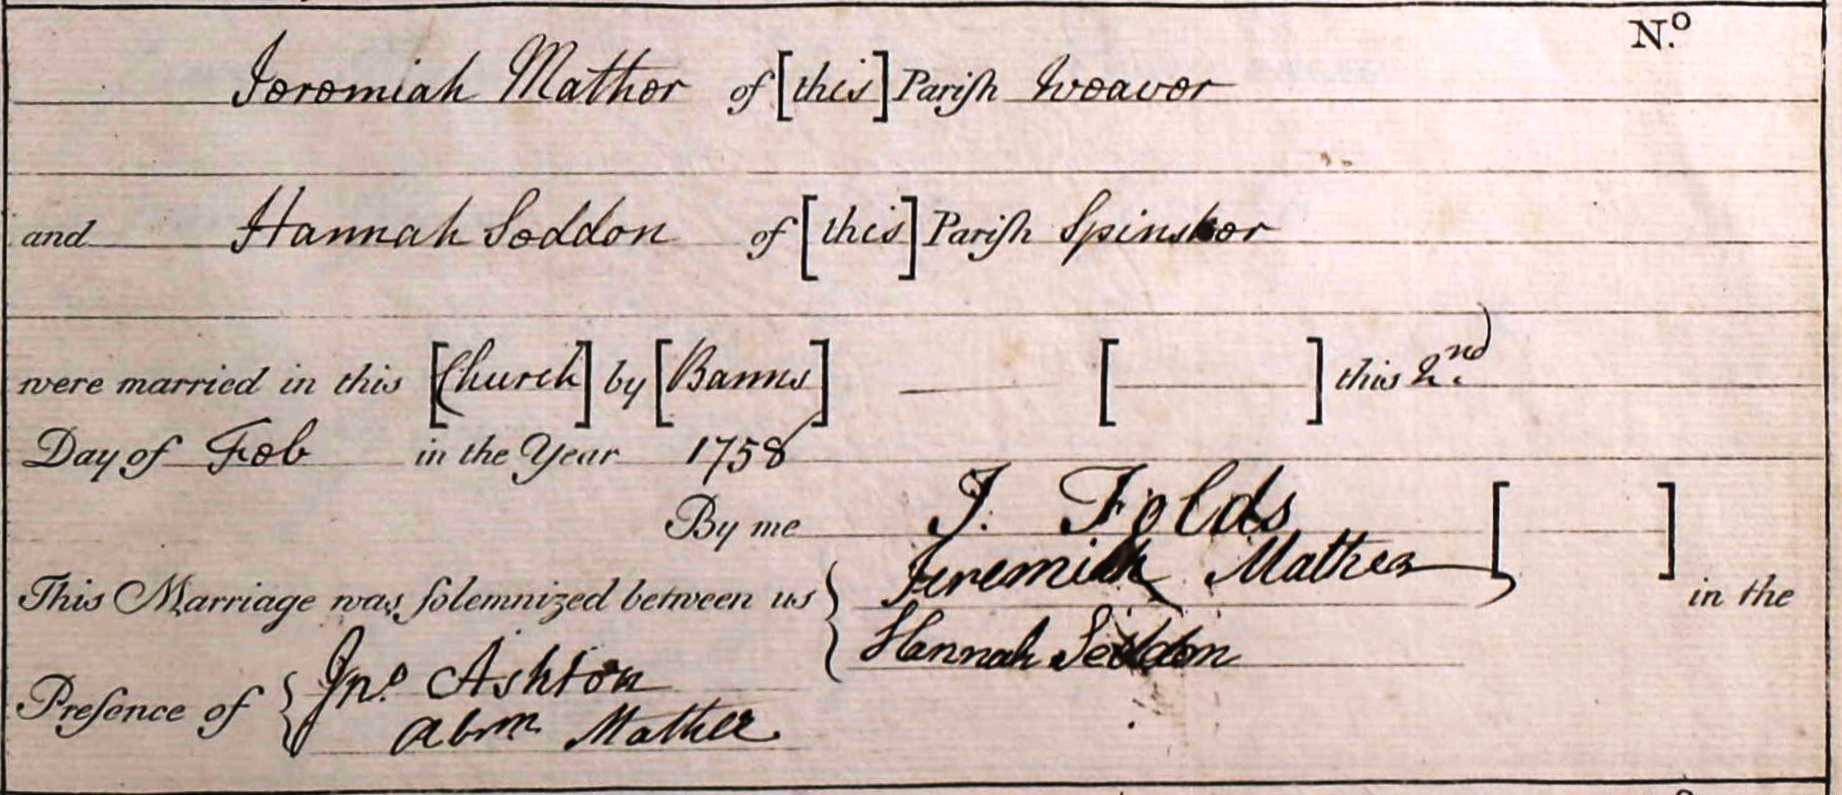 N.º
Jeremiah Mather of [this] Pariſh Weaver
and Hannah Seddon of [this] Pariſh Spinster
were married in this [Church] by [Banns] [ ] this 2.nd
Day of Feb in the Year 1758
By me J. Folds [ ]
This Marriage was ſolemnized between us { Jeremiah Mather in the
Hannah Seddon
Preſence of { Jno. Ashton
Abm. Mather